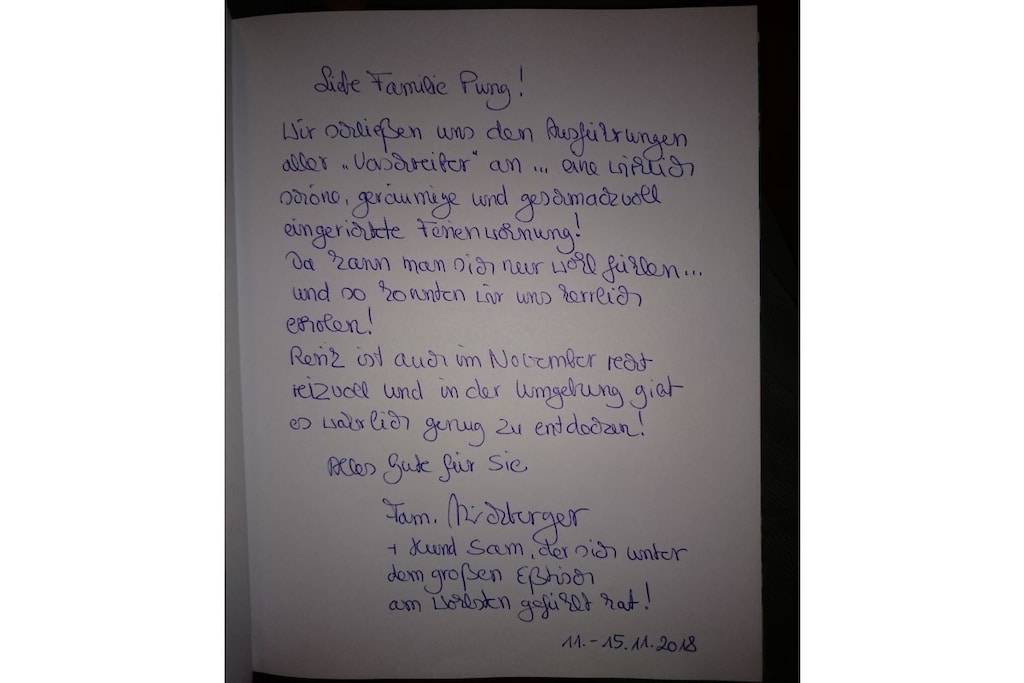 Liebe Familie Pung!
Wir schließen uns den Ausführungen
aller „Vorschreiber“ an ... eine wirklich
schöne, geräumige und geschmackvoll
eingerichtete Ferienwohnung!
Da kann man sich nur wohl fühlen...
und so konnten wir uns herrlich
erholen!
ist auch im November recht
reizvoll und in der Umgebung gibt
es wahrlich genug zu entdecken!
Alles Gute für Sie
Fam.
+ Hund Sam, der sich unter
dem großen Eßtisch
am wohlsten gefühlt hat!
11.-15.11.2018